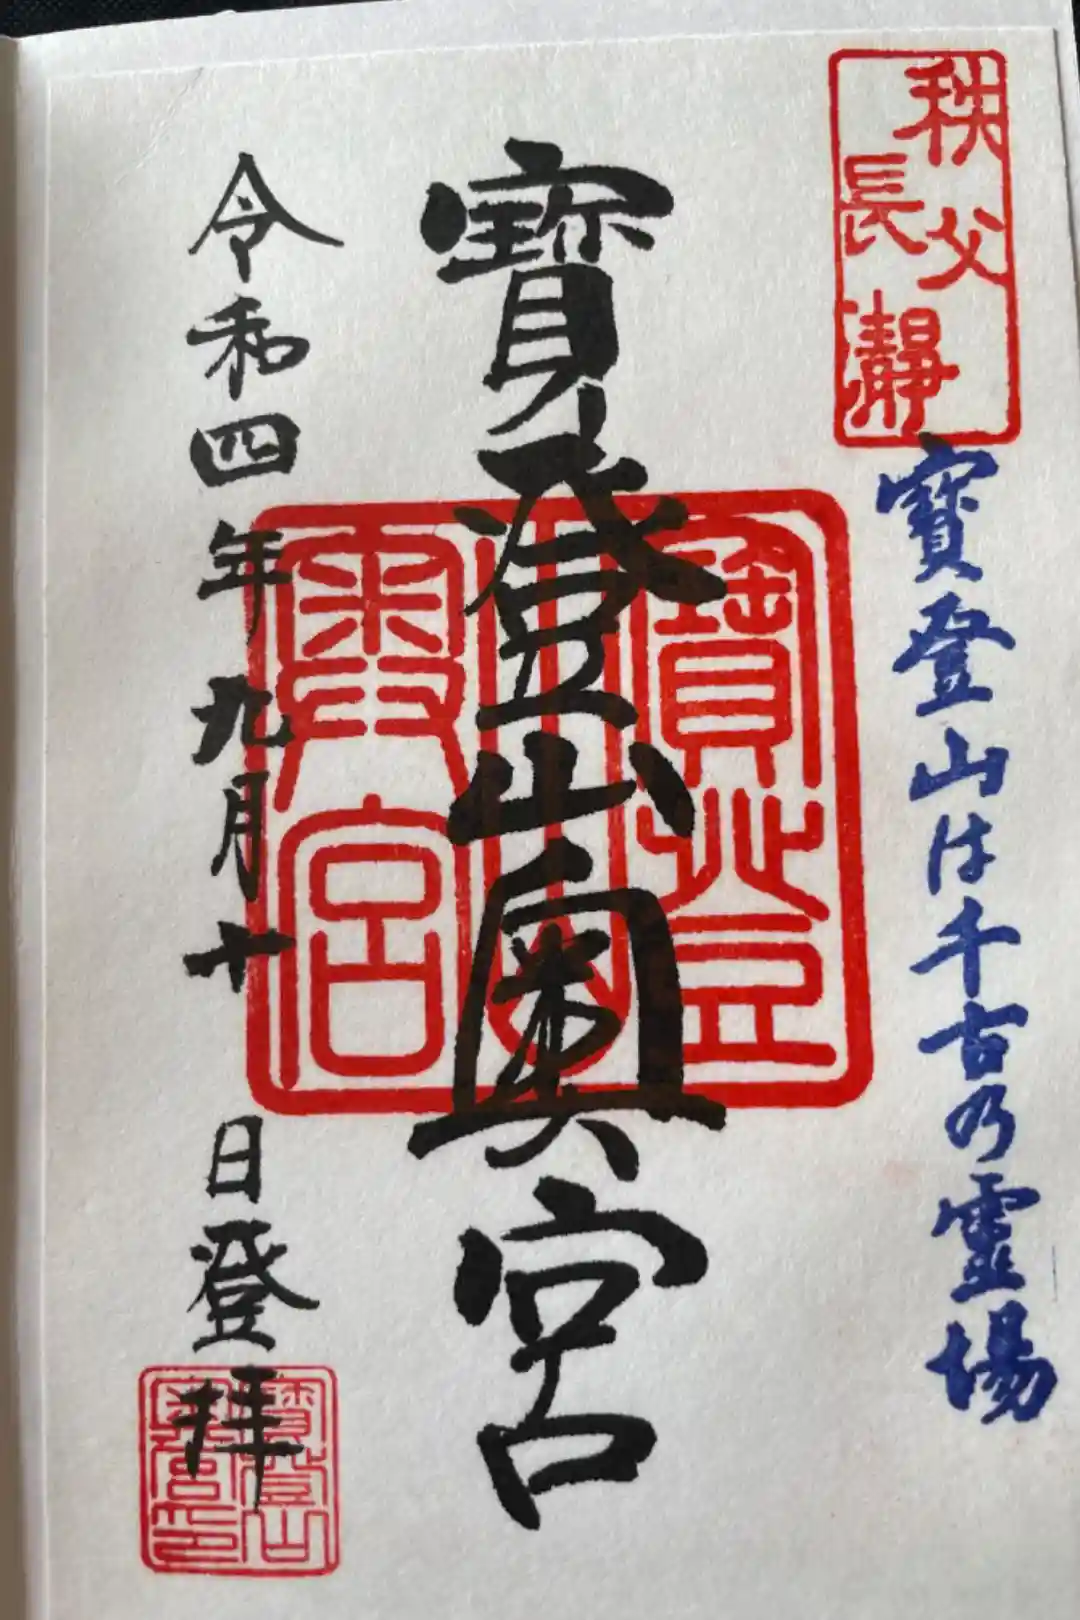 秩父
長瀞
寶登山は千古乃靈場
寶登山奥宮
寶登
山
奥宮
令和四年九月十日登拝
寶登山
奥宮印